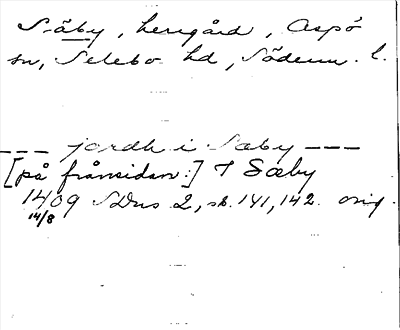 Säby, herrgård, Aspö
sn, Selebo hd, Söderm. l.
--- jordh i Sæby ---
[på frånsidan:] T Sæby
1409 SDns 2, s. 141, 142. orig.
14/8